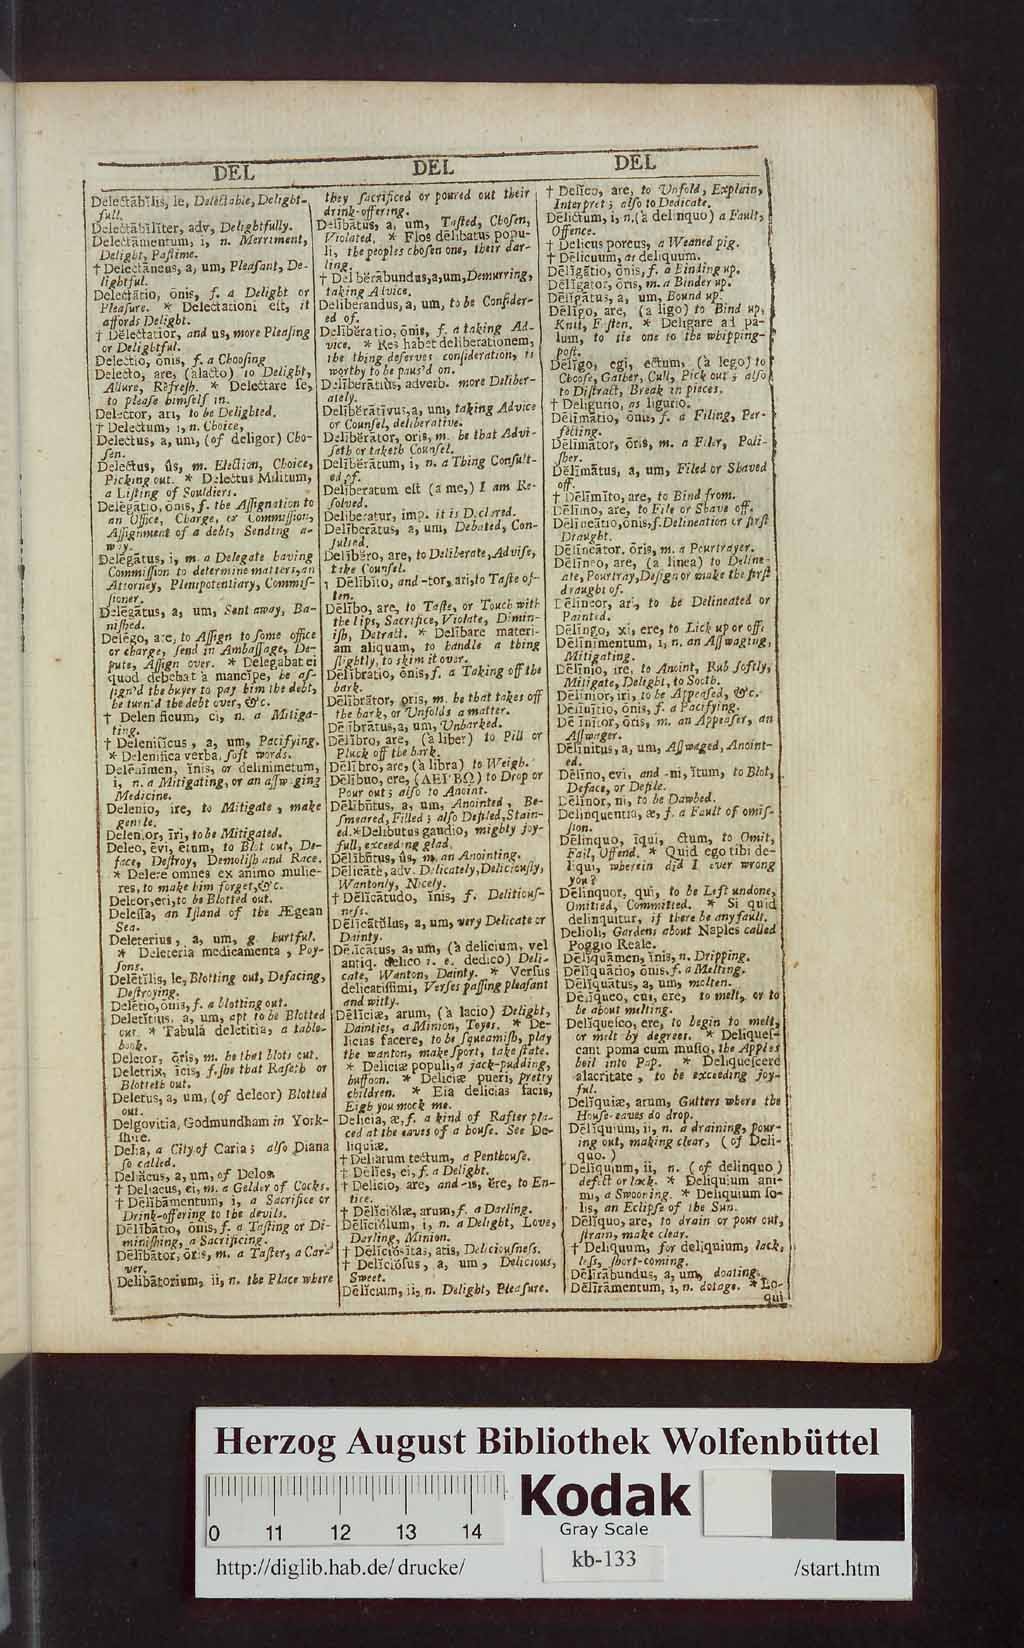 DEL
DEL
DEL
Delectābĭlis, le, Delectable, Delight-
full.
Delectābĭlĭter, adv, Delightfully.
Delectāmentum, i, n. Merriment,
Delight, Pastime.
† Delectāneus, a, um, Pleasant, De-
lightful.
Delectātio, ōnis, f. a Delight or
Pleasure. * Delectationi est, it
affords Delight.
† Dēlectatior, and us, more Pleasing
or Delightful.
Delectio, ōnis, f. a Choosing
Delecto, are, (àlacto) to Delight,
Allure, Refresh. * Delectare se,
to please himself in.
Delector, ari, to be Delighted.
† Delectum, i, n. Choice,
Delectus, a, um, (of deligor) Cho-
sen.
Delectus, ûs, m. Election, Choice,
Picking out. * Delectus Militum,
a Listing of Souldiers.
Delēgātio, ōnis, f. the Assignation to
an Office, Charge, or Commission,
Assignment of a debt, Sending a-
way.
Delēgātus, i, m. a Delegate having
Commission to determine matters, an
Attorney, Plenipotentiary, Commis-
sioner.
Delēgātus, a, um, Sent away, Ba-
nished.
Delēgo, are, to Assign to some office
or charge, send in Ambassage, De-
pute, Assign over. * Delegabat ei
quod debebat à mancipe, he as-
sign'd the buyer to pay him the debt,
he turn'd the debt over, &c.
† Delenificum, ci, n. a Mitiga-
ting.
† Delenificus, a, um, Pacifying.
* Delenifica verba, soft words.
Delēnĭmen, ĭnis, or delinimetum,
i, n. a Mitigating, or an asswaging
Medicine.
Delenio, ire, to Mitigate, make
gentle.
Delenior, īri, to be Mitigated.
Deleo, ēvi, ētum, to Blot out, De-
face, Destroy, Demolish and Race.
* Delere omnes ex animo mulie-
res, to make him forget, &c.
Deleor, eri, to be Blotted out.
Delessa, an Island of the Ægean
Sea.
Deleterius, a, um, g. hurtful.
* Deleteria medicamenta, Poy-
sons.
Delētĭlis, le, Blotting out, Defacing,
Destroying.
Deletio, ōnis, f. a blotting out.
Deletĭtius, a, um, apt to be Blotted
out. * Tabula deletitia, a table-
book.
Deletor, ōris, m. he that blots out.
Deletrix, ĭcis, f. she that Raseth or
Blotteth out.
Deletus, a, um, (of deleor) Blotted
out.
Delgovitia, Godmundham in York-
shire.
Delia, a City of Caria; also Diana
so called.
Deliăcus, a, um, of Delos.
† Deliacus, ci, m. a Gelder of Cocks.
† Dēlībāmentum, i, a Sacrifice or
Drink-offering to the devils.
Dēlībātio, ōnis, f. a Tasting or Di-
minishing, a Sacrificing.
Dēlībātor, ōris, m. a Taster, a Car-
ver.
Delibātorium, ii, n. the Place where
they sacrificed or poured out their
drink-offering.
Dēlībātus, a, um, Tasted, Chosen,
Violated. * Flos dēlibatus popu-
li, the peoples chosen one, their dar-
ling.
† Delibĕrābundus, a, um, Demurring,
taking Advice.
Deliberandus, a, um, to be Consider-
ed of.
Delibĕratio, ōnis, f. a taking Ad-
vice. * Res habet deliberationem,
the thing deserves consideration, is
worthy to be paus'd on.
Deliberatiùs, adverb. more Deliber-
ately.
Delibĕrātīvus, a, um, taking Advice
or Counsel, deliberative.
Delibĕrātor, oris, m. he that Advi-
seth or taketh Counsel.
Delibĕrātum, i, n. a Thing Consult-
ed of.
Deliberatum est (a me,) I am Re-
solved.
Deliberatur, imp. it is Declared.
Deliberātus, a, um, Debated, Con-
sulted.
Delibĕro, are, to Deliberate, Advise,
take Counsel.
Dēlībĭto, and -tor, ari, to Taste of-
ten.
Dēlībo, are, to Taste, or Touch with
the lips, Sacrifice, Violate, Dimin-
ish, Detract. * Delibare materi-
am aliquam, to handle a thing
slightly, to skim it over.
Delībratio, ōnis, f. a Taking off the
bark.
Delībrātor, oris, m. he that takes off
the bark, or Unfolds a matter.
Dēlībrātus, a, um, Unbarked.
Dēlĭbro, are, (à liber) to Pill or
Pluck off the bark.
Dēlībro, are, (à libra) to Weigh.
Dēlĭbuo, ere, (ΔΕΙΒΩ) to Drop or
Pour out; also to Anoint.
Dēlībūtus, a, um, Anointed, Be-
smeared, Filled; also Defiled, Stain-
ed. *Delibutus gaudio, mighty joy-
full, exceeding glad.
Dēlībūtus, ûs, m. an Anointing.
Dēlĭcātè, adv. Delicately, Deliciously,
Wantonly, Nicely.
† Dēlĭcātudo, ĭnis, f. Deliticus-
ness.
Dēlĭcātŭlus, a, um, very Delicate or
Dainty.
Dēlicātus, a, um, (à delicium, vel
antiq. delico i. e. dedico) Deli-
cate, Wanton, Dainty. * Versus
delicatissimi, Verses passing pleasant
and witty.
Dēlĭciæ, arum, (à lacio) Delight,
Dainties, a Minion, Toyes. * De-
licias facere, to be squeamish, play
the wanton, make sport, take state.
* Deliciæ populi, a jack-pudding,
buffoon. * Deliciæ pueri, pretty
children. * Eia delicias facis,
Eigh you mock me.
Delicia, æ, f. a kind of Rafter pla-
ced at the eaves of a house. See De-
liquiæ.
† Deliarum tectum, a Penthouse.
† Delĭes, ei, f. a Delight.
† Delicio, are, and -is, ĕre, to En-
tice.
† Dēlĭciŏlæ, arum, f. a Darling.
Dēlĭciŏlum, i, n. a Delight, Love,
Darling, Minion.
† Dēlĭciōsĭtas, atis, Deliciousness.
† Delĭciōsus, a, um, Delicious,
Sweet.
Delĭcium, ii, n. Delight, Pleasure.
† Delĭco, are, to Unfold, Explain,
Interpret; also to Dedicate.
Dēlictum, i, n. (à delinquo) a Fault,
Offence.
† Delicus porcus, a Weaned pig.
† Dēlicuum, as deliquum.
Dēlĭgātio, ōnis, f. a Binding up.
Dēlĭgātor, ōris, m. a Binder up.
Dēlĭgātus, a, um, Bound up.
Dēlĭgo, are, (a ligo) to Bind up,
Knit, Fasten. * Deligare ad pa-
lum, to tie one to the whipping-
post.
Delĭgo, egi, ectum, (à lego) to
Choose, Gather, Cull, Pick out; also
to Distract, Break in pieces.
† Deligurio, as ligurio.
Dēlīmātio, ōnis, f. a Filing, Per-
fecting.
Dēlīmātor, ōris, m. a Filer, Poli-
sher.
Dēlīmātus, a, um, Filed or Shaved
off.
† Delīmĭto, are, to Bind from.
Delīmo, are, to File or Shave off.
Delineātio, ōnis, f. Delineation or first
Draught.
Dēlīneātor, ōris, m. a Pourtrayer.
Dēlīneo, are, (a linea) to Deline-
ate, Pourtray, Design or make the first
draught of.
Delineor, ari, to be Delineated or
Painted.
Dēlingo, xi, ere, to Lick up or off.
Dēlīnimentum, i, n. an Asswaging,
Mitigating.
Dēlīnio, ire, to Anoint, Rub softly,
Mitigate, Delight, to Sooth.
Dēlīnior, iri, to be Appeased, &c.
Dēlīnītio, ōnis, f. a Pacifying.
Dēlīnītor, ōris, m. an Appeaser, an
Asswager.
Dēlīnītus, a, um, Asswaged, Anoint-
ed.
Dēlīno, evi, and -ni, ĭtum, to Blot,
Deface, or Defile.
Dēlīnor, ni, to be Dawbed.
Delinquentia, æ, f. a Fault of omis-
sion.
Dēlinquo, īqui, ctum, to Omit,
Fail, Offend. * Quid ego tibi de-
liqui, wherein did I ever wrong
you?
Dēlinquor, qui, to be Left undone,
Omitted, Committed. * Si quid
delinquitur, if there be any fault.
Delioli, Gardens about Naples called
Poggio Reale.
Dēlĭquāmen, ĭnis, n. Dripping.
Dēlĭquātio, ōnis, f. a Melting.
Dēlĭquātus, a, um, molten.
Delĭqueo, cui, ere, to melt, or to
be about melting.
Delĭquesco, ere, to begin to melt,
or melt by degrees. * Deliques-
cant poma cum musto, the Apples
boil into Pap. * Deliquescere
alacritate, to be exceeding joy-
ful.
Delĭquiæ, arum, Gutters where the
House-eaves do drop.
Dēlĭquium, ii, n. a draining, pour-
ing out, making clear, (of Deli-
quo.)
Delĭquium, ii, n. (of delinquo)
defect or lack. * Deliquium ani-
mi, a Swooning. * Deliquium so-
lis, an Eclipse of the Sun.
Delĭquo, are, to drain or pour out,
strain, make clear.
† Deliquum, for deliquium, lack,
loss, short-coming.
Dēlīrābundus, a, um, doating.
Dēlīrāmentum, i, n. dotage. * Lo-
qui
Herzog August Bibliothek Wolfenbüttel
0 11 12 13 14
Kodak
Gray Scale
kb-133
http://diglib.hab.de/ drucke/
/start.htm